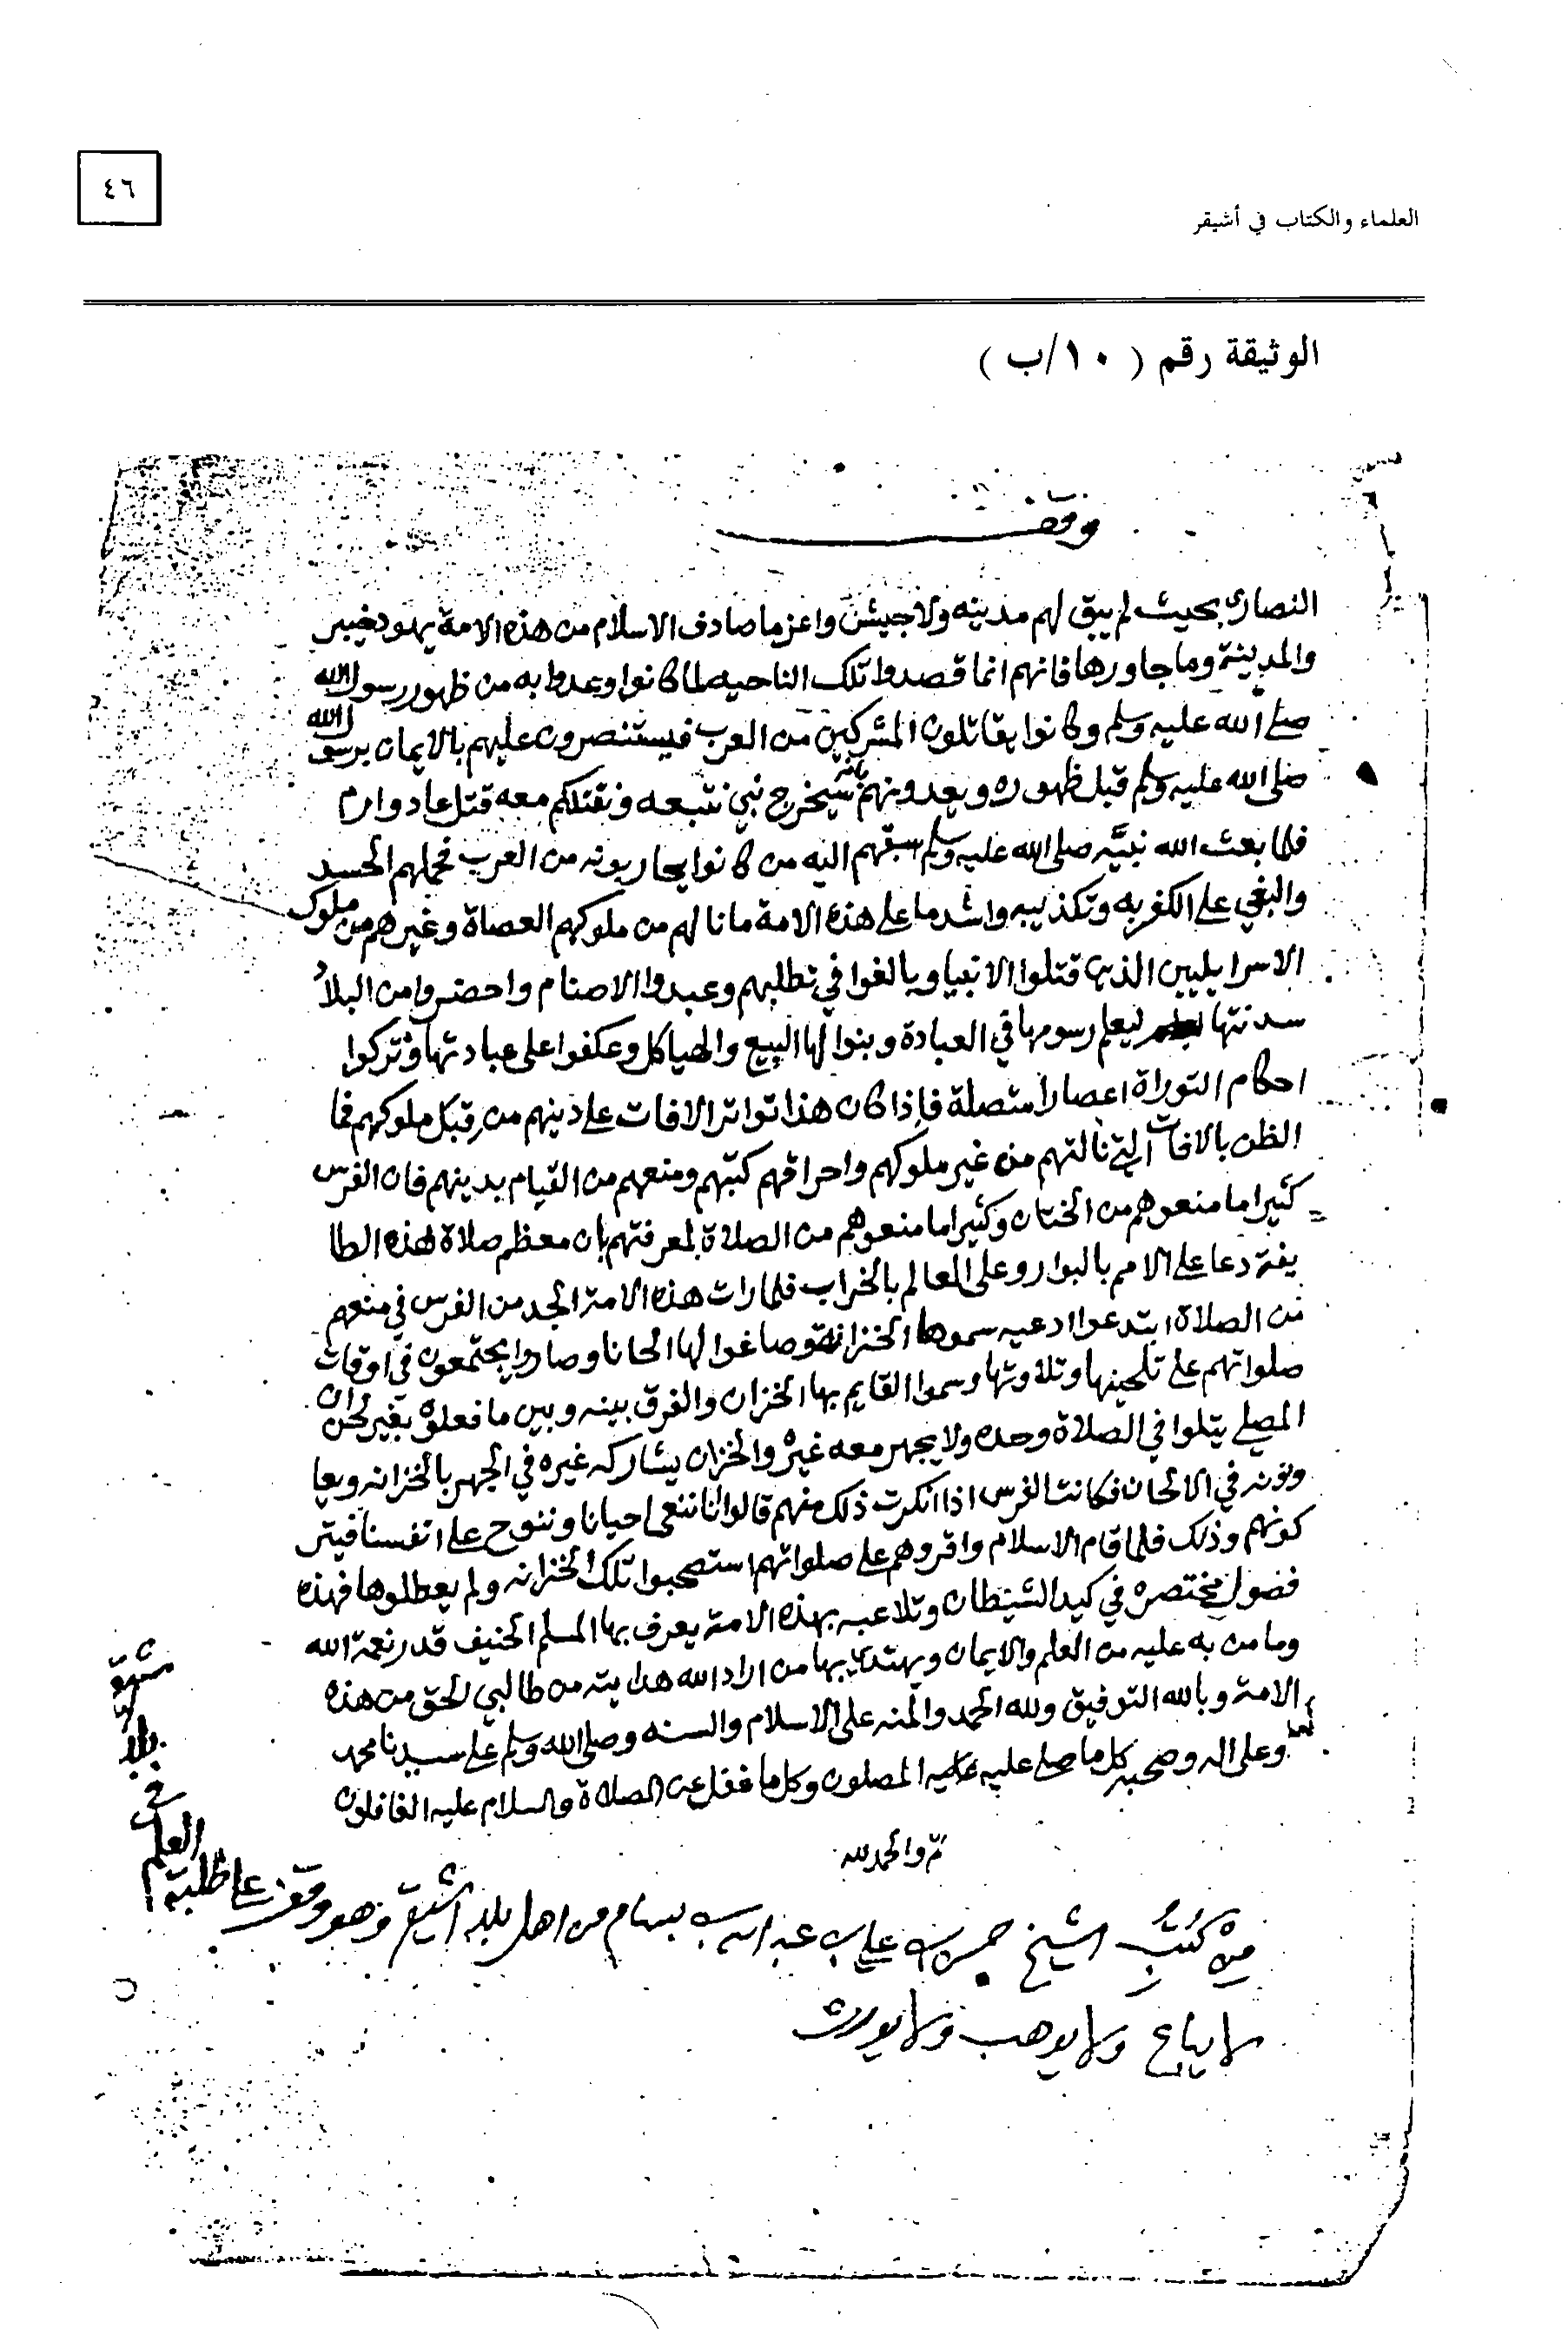 ٤٦
العلماء والكتاب في أشيقر
الوثيقة رقم ( ١٠/ب )
وقف
النصارى بحيث لم يبق لهم مدينه ولا جيش واعز ما صادف الاسلام من هذه الامة يهود خيبر
والمدينة وما جاورها فانهم انما قصدوا تلك الناحيه لما كانوا وعدوا به من ظهور رسول الله
صلى الله عليه وسلم وكانوا يقاتلون المشركين من العرب فيستنصرون عليهم بالايمان برسول الله
صلى الله عليه وسلم قبل ظهوره ويعدونهم بانه سيخرج نبي نتبعه ونقتلكم معه قتل عاد وارم
فلما بعث الله نبيه صلى الله عليه وسلم سبقهم اليه من كانوا يحاربونه من العرب فحملهم الحسد
والبغي على الكفر به وتكذيبه واشد ما على هذه الامة ما نالهم من ملوكهم العصاة وغيرهم من ملوك
الاسرايليين الذين قتلوا الانبيا وبالغوا في تطلبهم وعبدوا الاصنام واحضروا من البلاد
سدنتها ليعلم رسومها في العبادة وبنوا لها البيع والهياكل وعكفوا على عبادتها وتركوا
احكام التوراة اعصارا متصلة فاذا كان هذا تواتر الافات على دينهم من قبل ملوكهم فما
الظن بالافات التي نالتهم من غير ملوكهم واحراقهم كتبهم ومنعهم من القيام بدينهم فان الفرس
كثيرا ما منعوهم من الختان وكثيرا ما منعوهم من الصلاة لمعرفتهم بان معظم صلاة هذه الطا
يفة دعا على الامم بالبوار وعلى العالم بالخراب فلما رات هذه الامة الجد من الفرس في منعهم
من الصلاة ابتدعوا ادعيه سموها الخزانة وصاغوا لها الحانا وصاروا يجتمعون في اوقات
صلواتهم على تلحينها وتلاوتها وسموا القايم بها الخزان والفرق بينه وبين ما فعلوه بغير لحن ان
المصلي يتلوا في الصلاة وحده ولا يجهر معه غيره والخزان يشاركه غيره في الجهر بالخزانه ويعا
ونونه في الالحان فكانت الفرس اذا انكرت ذلك منهم قالوا انا ننعى احيانا وننوح على انفسنا فيتر
كونهم وذلك فلما قام الاسلام واقروهم على صلواتهم استصحبوا تلك الخزانه ولم يعطلوها فهذه
فصول مختصره في كيد الشيطان وتلاعبه بهذه الامة يعرف بها المسلم الحنيف قدر نعمة الله
وما من به عليه من العلم والايمان ويهتدي بها من اراد الله هدايته من طالبي الحق من هذه
الامة وبالله التوفيق ولله الحمد والمنه على الاسلام والسنه وصلى الله وسلم على سيدنا محمد
وعلى اله وصحبه كل ما صلى عليه المصلون وكل ما غفل عن الصلاة والسلام عليه الغافلون
تم والحمد لله
من كتب الشيخ حسن بن علي بن عبد الله بن بسام من اهل بلد اشيقر وهو وقف على طلبة
العلم
في
بلد
اشيقر
لا يباع ولا يوهب ولا يورث